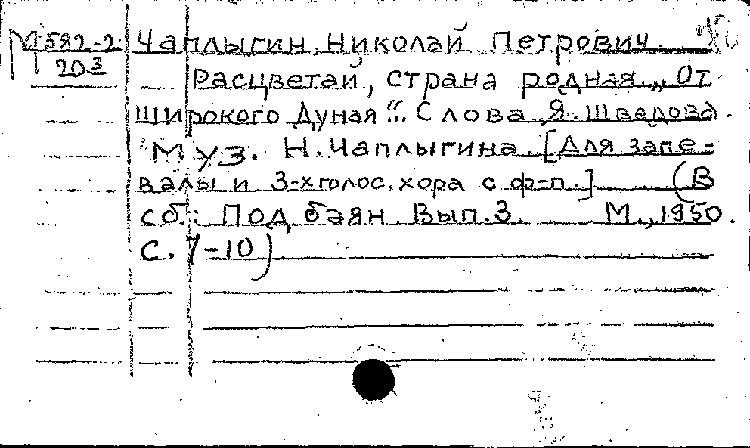 М 582-2 Чаплыгин, Николай Петрович.
20 3 Расцветай, страна родная. „От
широкого Дуная“... Слова Я. Швадова.
Муз. Н. Чаплыгина. [Для запе-
валы и 3-хголос. хора с ф-п.] (В
сб.: Под баян. Вып. 3. М., 1950.
С. 7-10)